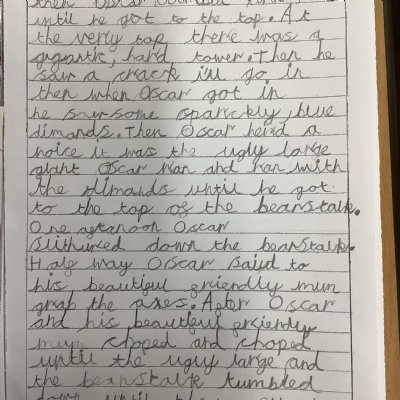 then Oscar
until he got to the top. At
the veriy top there was a
gigantic, hard tower. Then he
saw a crack i'll go in
then when Oscar got in
he saw some sparickly, blue
dimands. Then Oscar herd a
noice it was the ugly large
giant Oscar ran and ran with
the dimands until he got
to the top of the beanstalk.
One afternoon Oscar
slithured down the beanstalk.
Half way Oscar saiyd to
his beautiful friendly mum
grab the axes. After Oscar
and his beautiful friendly
mum choped and choped
until the ugly large and
the beanstalk tumbled
down until